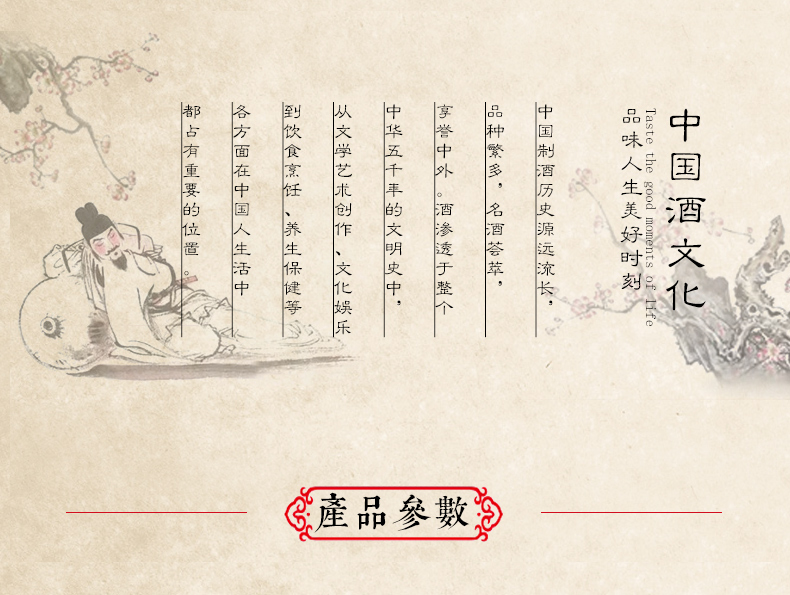 中国酒文化
Taste the good moments of life
品味人生美好时刻
中国制酒历史源远流长，
品种繁多，名酒荟萃，
享誉中外。酒渗透于整个
中华五千年的文明史中，
从文学艺术创作、文化娱乐
到饮食烹饪、养生保健等
各方面在中国人生活中
都占有重要的位置。
產品參數